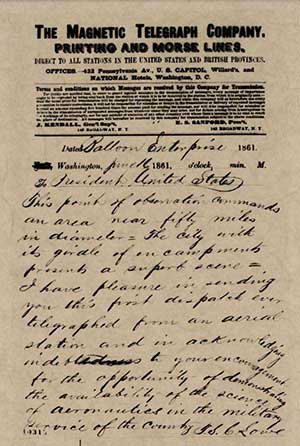 THE MAGNETIC TELEGRAPH COMPANY.
PRINTING AND MORSE LINES.
DIRECT TO ALL STATIONS IN THE UNITED STATES AND BRITISH PROVINCES.
OFFICES—432 Pennsylvania Av., U. S. CAPITOL, Willard's, and
NATIONAL Hotels, Washington, D. C.
Terms and conditions on which Messages are received by this Company for Transmission.
J. KENDALL, Gen'l Sup't, E. S. SANFORD, Pres't,
145 BROADWAY, N. Y. 145 BROADWAY, N. Y.
Dated Balloon Enterprise 1861.
Washington, June 1861, o'clock, min. M.
To President United States
This point of observation commands
an area near fifty miles
in diameter = The city with
its girdle of encampments
presents a superb scene =
I have pleasure in sending
you this first dispatch ever
telegraphed from an aerial
station and in acknowledging
indebtedness to your encouragement
for the opportunity of demonstrating
the availability of the science
of aeronautics in the military
service of the country T. S. C. Lowe